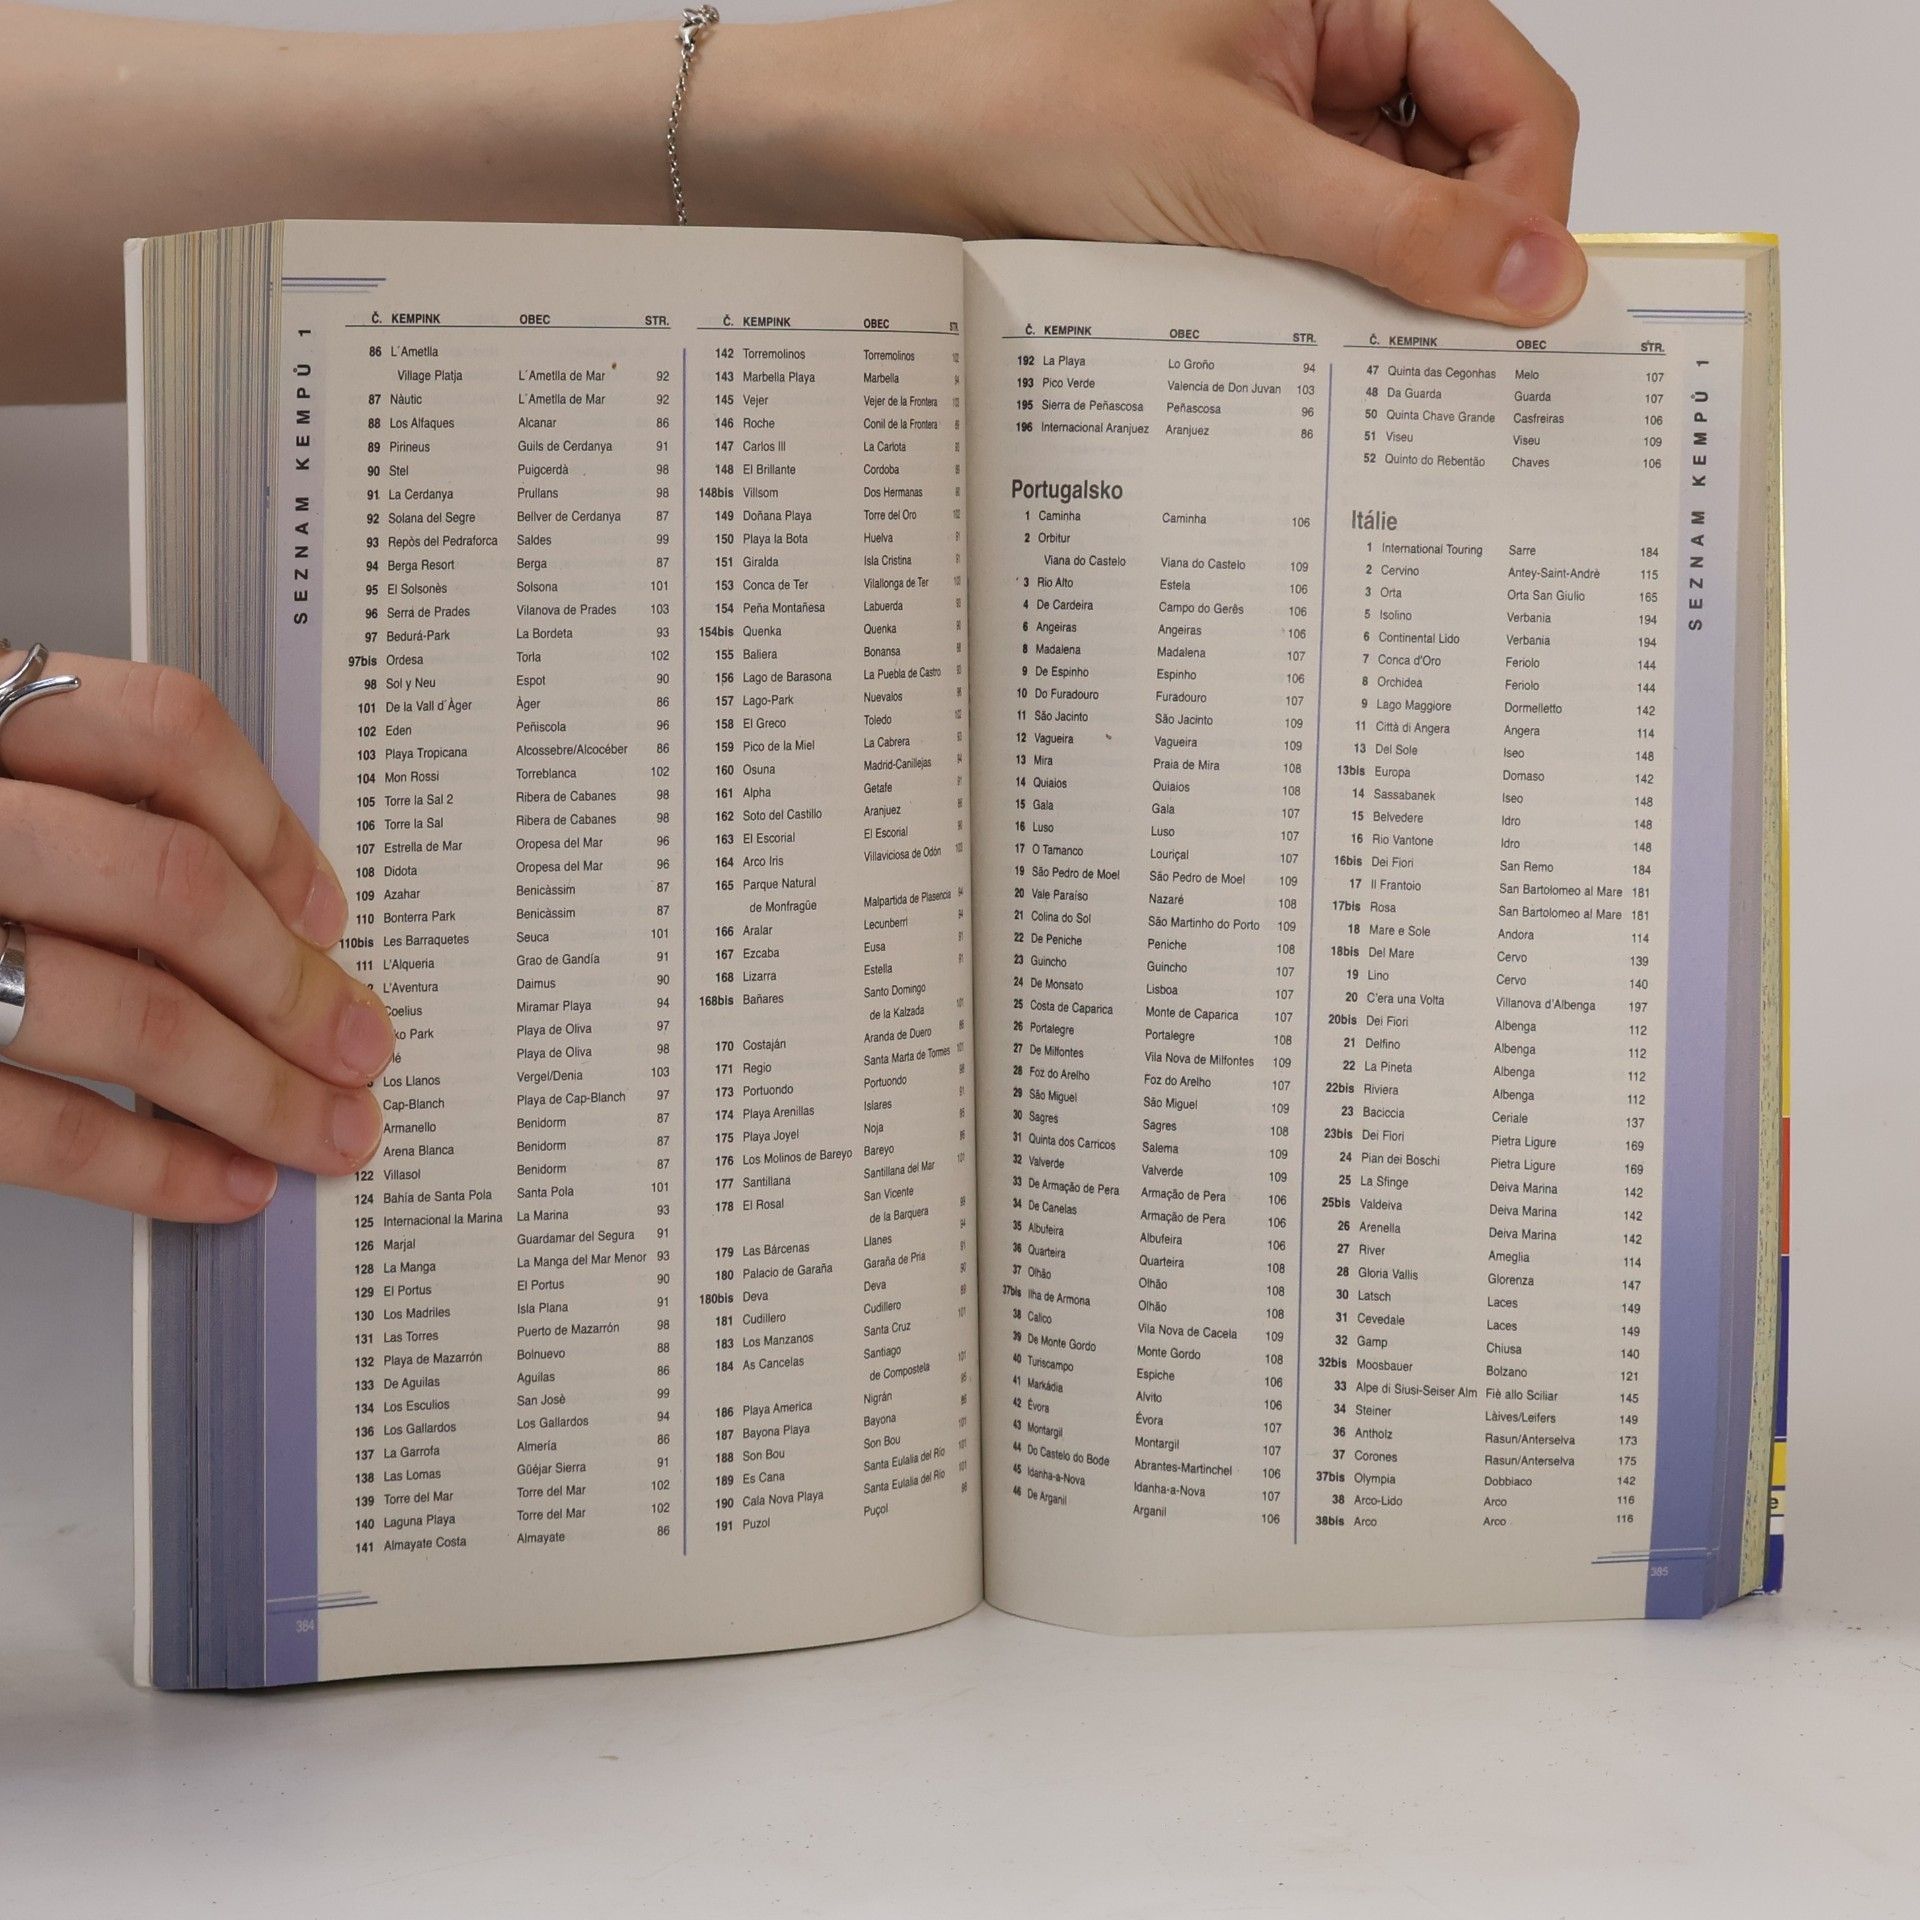 SEZNAM KEMPŮ 1
Č. KEMPINK OBEC STR.
86 L´Ametlla
Village Platja L´Ametlla de Mar 92
87 Nàutic L´Ametlla de Mar 92
88 Los Alfaques Alcanar 86
89 Pirineus Guils de Cerdanya 91
90 Stel Puigcerdà 98
91 La Cerdanya Prullans 98
92 Solana del Segre Bellver de Cerdanya 87
93 Repòs del Pedraforca Saldes 99
94 Berga Resort Berga 87
95 El Solsonès Solsona 101
96 Serra de Prades Vilanova de Prades 103
97 Bedurá-Park La Bordeta 93
97bis Ordesa Torla 102
98 Sol y Neu Espot 90
101 De la Vall d´Àger Àger 86
102 Eden Peñiscola 96
103 Playa Tropicana Alcossebre/Alcocéber 86
104 Mon Rossi Torreblanca 102
105 Torre la Sal 2 Ribera de Cabanes 98
106 Torre la Sal Ribera de Cabanes 98
107 Estrella de Mar Oropesa del Mar 96
108 Didota Oropesa del Mar 96
109 Azahar Benicàssim 87
110 Bonterra Park Benicàssim 87
110bis Les Barraquetes Seuca 101
111 L'Alqueria Grao de Gandía 91
L'Aventura Daimus 90
Coelius Miramar Playa 94
ko Park Playa de Oliva 97
lé Playa de Oliva 98
Los Llanos Vergel/Denia 103
Cap-Blanch Playa de Cap-Blanch 97
Armanello Benidorm 87
Arena Blanca Benidorm 87
122 Villasol Benidorm 87
124 Bahía de Santa Pola Santa Pola 101
125 Internacional la Marina La Marina 93
126 Marjal Guardamar del Segura 91
128 La Manga La Manga del Mar Menor 93
129 El Portus El Portus 90
130 Los Madriles Isla Plana 91
131 Las Torres Puerto de Mazarrón 98
132 Playa de Mazarrón Bolnuevo 88
133 De Aguilas Aguilas 86
134 Los Esculios San Josè 99
136 Los Gallardos Los Gallardos 94
137 La Garrofa Almería 86
138 Las Lomas Güéjar Sierra 91
139 Torre del Mar Torre del Mar 102
140 Laguna Playa Torre del Mar 102
141 Almayate Costa Almayate 86
384
Č. KEMPINK OBEC STR.
142 Torremolinos Torremolinos
143 Marbella Playa Marbella
145 Vejer Vejer de la Frontera
146 Roche Conil de la Frontera
147 Carlos III La Carlota
148 El Brillante Cordoba
148bis Villsom Dos Hermanas
149 Doñana Playa Torre del Oro
150 Playa la Bota Huelva
151 Giralda Isla Cristina
153 Conca de Ter Vilallonga de Ter
154 Peña Montañesa Labuerda
154bis Quenka Quenka
155 Baliera Bonansa
156 Lago de Barasona La Puebla de Castro
157 Lago-Park Nuevalos
158 El Greco Toledo
159 Pico de la Miel La Cabrera
160 Osuna Madrid-Canillejas
161 Alpha Getafe
162 Soto del Castillo Aranjuez
163 El Escorial El Escorial
164 Arco Iris Villaviciosa de Odón
165 Parque Natural
de Monfragüe Malpartida de Plasencia
166 Aralar Lecunberri
167 Ezcaba Eusa
168 Lizarra Estella
168bis Bañares Santo Domingo
de la Kalzada
170 Costaján Aranda de Duero
171 Regio Santa Marta de Tormes
173 Portuondo Portuondo
174 Playa Arenillas Islares
175 Playa Joyel Noja
176 Los Molinos de Bareyo Bareyo
177 Santillana Santillana del Mar
178 El Rosal San Vicente
de la Barquera
179 Las Bárcenas Llanes
180 Palacio de Garaña Garaña de Pria
180bis Deva Deva
181 Cudillero Cudillero
183 Los Manzanos Santa Cruz
184 As Cancelas Santiago
de Compostela
186 Playa America Nigrán
187 Bayona Playa Bayona
188 Son Bou Son Bou
189 Es Cana Santa Eulalia del Río
190 Cala Nova Playa Santa Eulalia del Río
191 Puzol Puçol
Č. KEMPINK OBEC STR.
192 La Playa Lo Groño 94
193 Pico Verde Valencia de Don Juvan 103
195 Sierra de Peñascosa Peñascosa 96
196 Internacional Aranjuez Aranjuez 86
Portugalsko
1 Caminha Caminha 106
2 Orbitur
Viana do Castelo Viana do Castelo 109
3 Rio Alto Estela 106
4 De Cardeira Campo do Gerês 106
6 Angeiras Angeiras 106
8 Madalena Madalena 107
9 De Espinho Espinho 106
10 Do Furadouro Furadouro 107
11 São Jacinto São Jacinto 109
12 Vagueira Vagueira 109
13 Mira Praia de Mira 108
14 Quiaios Quiaios 108
15 Gala Gala 107
16 Luso Luso 107
17 O Tamanco Louriçal 107
19 São Pedro de Moel São Pedro de Moel 109
20 Vale Paraíso Nazaré 108
21 Colina do Sol São Martinho do Porto 109
22 De Peniche Peniche 108
23 Guincho Guincho 107
24 De Monsato Lisboa 107
25 Costa de Caparica Monte de Caparica 107
26 Portalegre Portalegre 108
27 De Milfontes Vila Nova de Milfontes 109
28 Foz do Arelho Foz do Arelho 107
29 São Miguel São Miguel 109
30 Sagres Sagres 108
31 Quinta dos Carricos Salema 109
32 Valverde Valverde 109
33 De Armação de Pera Armação de Pera 106
34 De Canelas Armação de Pera 106
35 Albufeira Albufeira 106
36 Quarteira Quarteira 108
37 Olhão Olhão 108
37bis Ilha de Armona Olhão 108
38 Calico Vila Nova de Cacela 109
39 De Monte Gordo Monte Gordo 108
40 Turiscampo Espiche 106
41 Markádia Alvito 106
42 Évora Évora 107
43 Montargil Montargil 107
44 Do Castelo do Bode Abrantes-Martinchel 106
45 Idanha-a-Nova Idanha-a-Nova 107
46 De Arganil Arganil 106
Č. KEMPINK OBEC STR.
47 Quinta das Cegonhas Melo 107
48 Da Guarda Guarda 107
50 Quinta Chave Grande Casfreiras 106
51 Viseu Viseu 109
52 Quinto do Rebentão Chaves 106
Itálie
1 International Touring Sarre 184
2 Cervino Antey-Saint-Andrè 115
3 Orta Orta San Giulio 165
5 Isolino Verbania 194
6 Continental Lido Verbania 194
7 Conca d'Oro Feriolo 144
8 Orchidea Feriolo 144
9 Lago Maggiore Dormelletto 142
11 Città di Angera Angera 114
13 Del Sole Iseo 148
13bis Europa Domaso 142
14 Sassabanek Iseo 148
15 Belvedere Idro 148
16 Rio Vantone Idro 148
16bis Dei Fiori San Remo 184
17 Il Frantoio San Bartolomeo al Mare 181
17bis Rosa San Bartolomeo al Mare 181
18 Mare e Sole Andora 114
18bis Del Mare Cervo 139
19 Lino Cervo 140
20 C'era una Volta Villanova d'Albenga 197
20bis Dei Fiori Albenga 112
21 Delfino Albenga 112
22 La Pineta Albenga 112
22bis Riviera Albenga 112
23 Baciccia Ceriale 137
23bis Dei Fiori Pietra Ligure 169
24 Pian dei Boschi Pietra Ligure 169
25 La Sfinge Deiva Marina 142
25bis Valdeiva Deiva Marina 142
26 Arenella Deiva Marina 142
27 River Ameglia 114
28 Gloria Vallis Glorenza 147
30 Latsch Laces 149
31 Cevedale Laces 149
32 Gamp Chiusa 140
32bis Moosbauer Bolzano 121
33 Alpe di Siusi-Seiser Alm Fiè allo Sciliar 145
34 Steiner Làives/Leifers 149
36 Antholz Rasun/Anterselva 173
37 Corones Rasun/Anterselva 175
37bis Olympia Dobbiaco 142
38 Arco-Lido Arco 116
38bis Arco Arco 116
SEZNAM KEMPŮ 1
385